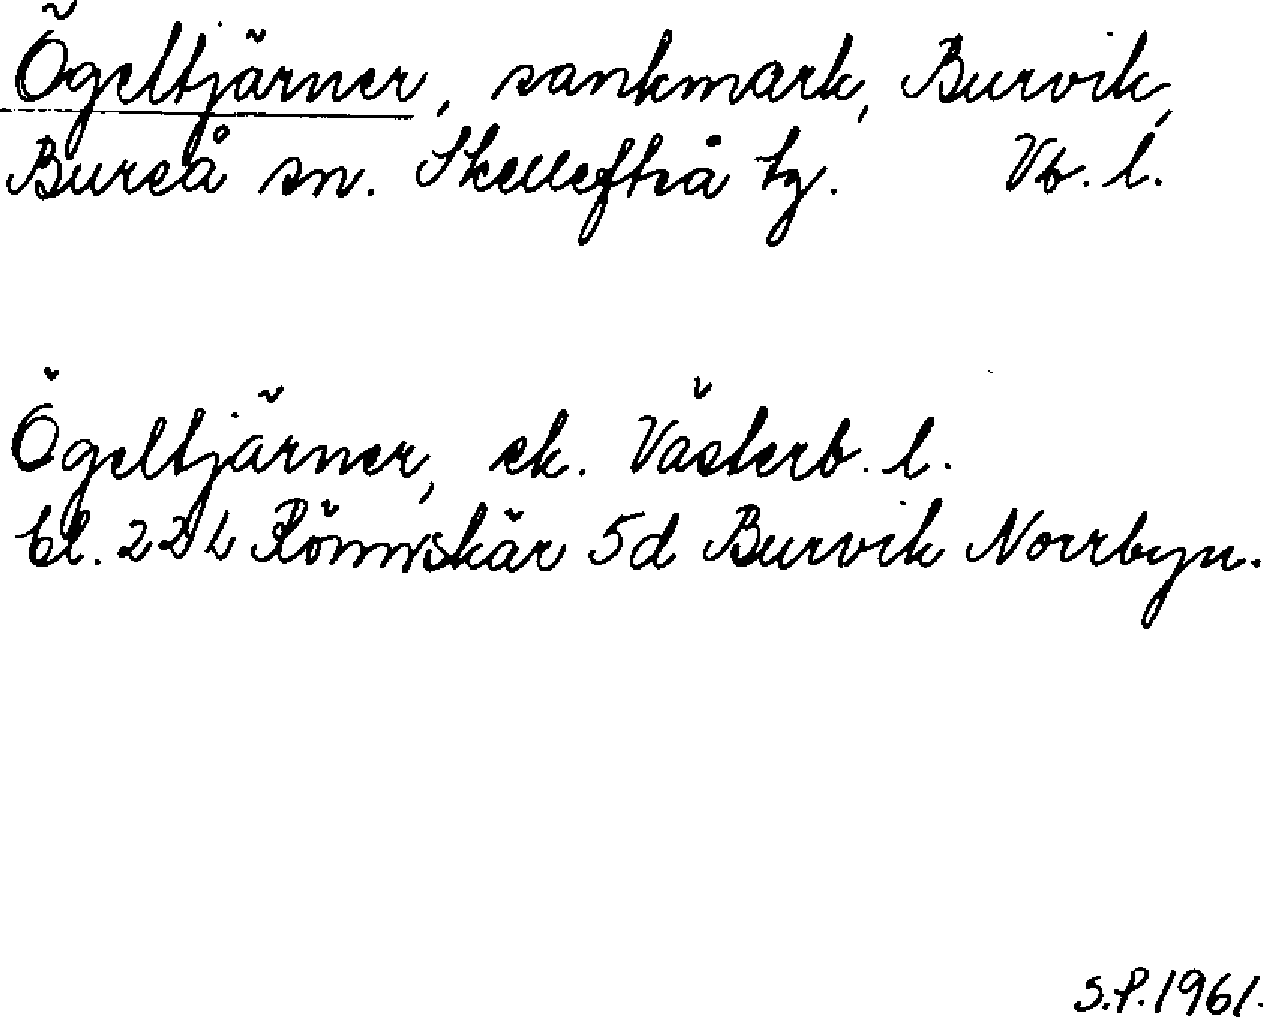 Ögeltjärner, sankmark, Burvik,
Bureå sn. Skellefteå tg. Vb. l.
Ögeltjärner, ek. Västerb. l.
bl. 22 L Rönnskär 5d Burvik Norrbyn.
S.P. 1961.